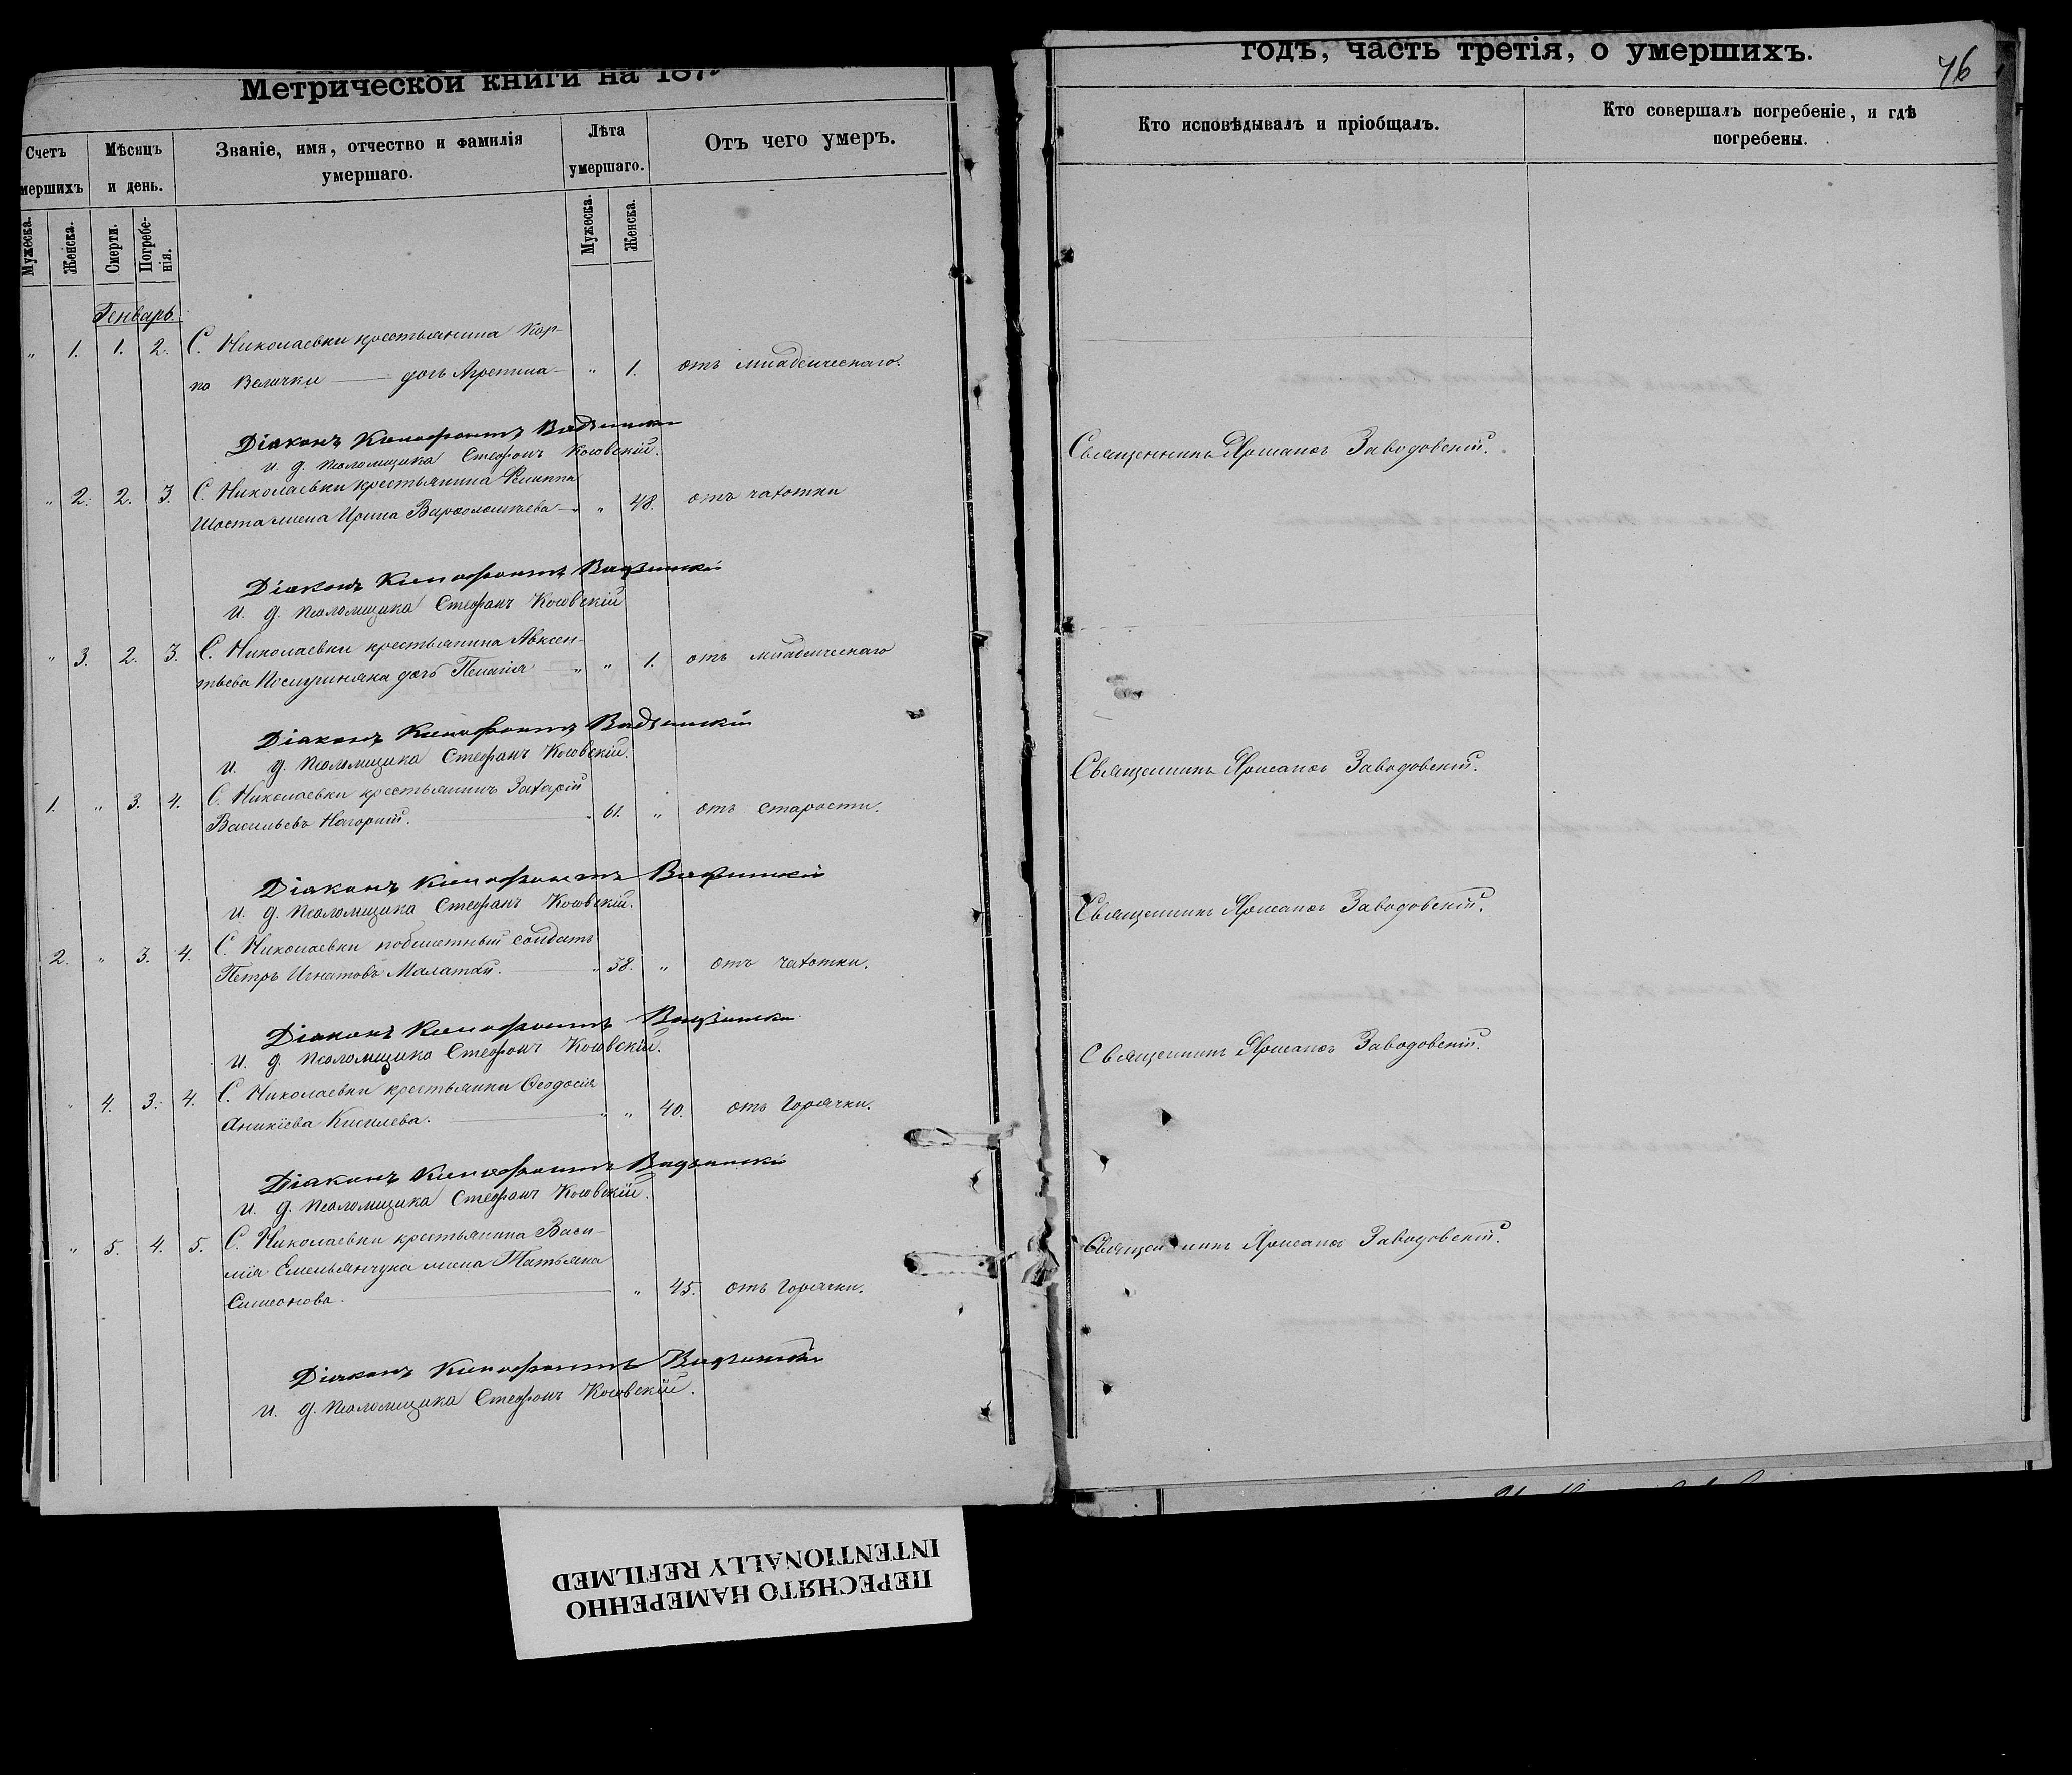 Метрической книги на 187
годъ, часть третія, о умершихъ.
76
Счетъ
мершихъ
Мѣсяцъ
и день.
Званіе, имя, отчество и фамилія
умершаго.
Лѣта
умершаго.
Отъ чего умеръ.
Кто исповѣдывалъ и пріобщалъ.
Кто совершалъ погребеніе, и гдѣ
погребены.
Мужеска.
Женска.
Смерти.
Погребе-
нія.
Мужеска.
Женска.
Генварь.
" 1. 1. 2. С. Николаевки крестьянина Кар-
по Велички — дочь Агрепина — " 1. отъ младенческаго.
Діаконъ Ксенофонтъ
и. д. псаломщика Стефанъ Косовскій.
Священникъ Заводовскій.
" 2. 2. 3. С. Николаевки крестьянина Филиппа
Шоста жена Ирина Варфоломѣева — " " 48. отъ чахотки
Діаконъ Ксенофонтъ
и. д. псаломщика Стефанъ Косовскій
" 3. 2. 3. С. Николаевки крестьянина Авксен-
тьева дочь Пелагія " " 1. отъ младенческаго
Діаконъ Ксенофонтъ
и. д. псаломщика Стефанъ Косовскій.
Священникъ Заводовскій.
1. " 3. 4. С. Николаевки крестьянинъ Захарій
Васильевъ Нагорний. — " 61. " отъ старости.
Діаконъ Ксенофонтъ
и. д. псаломщика Стефанъ Косовскій.
Священникъ Заводовскій.
2. " 3. 4. С. Николаевки побилетный солдатъ
Петръ Игнатовъ Малатай. — " 38. " отъ чахотки.
Діаконъ Ксенофонтъ
и. д. псаломщика Стефанъ Косовскій.
Священникъ Заводовскій.
" 4. 3. 4. С. Николаевки крестьянки Ѳеодосія
Аникіева Кисилева. — " " 40. отъ горячки.
Діаконъ Ксенофонтъ
и. д. псаломщика Стефанъ Косовскій.
" 5. 4. 5. С. Николаевки крестьянина Васи-
лія Емельянчука жена Татьяна
Симеонова. — " 45. отъ горячки.
Священникъ Заводовскій.
Діаконъ Ксенофонтъ
и. д. псаломщика Стефанъ Косовскій.
ПЕРЕСНЯТО НАМЕРЕННО
INTENTIONALLY REFILMED